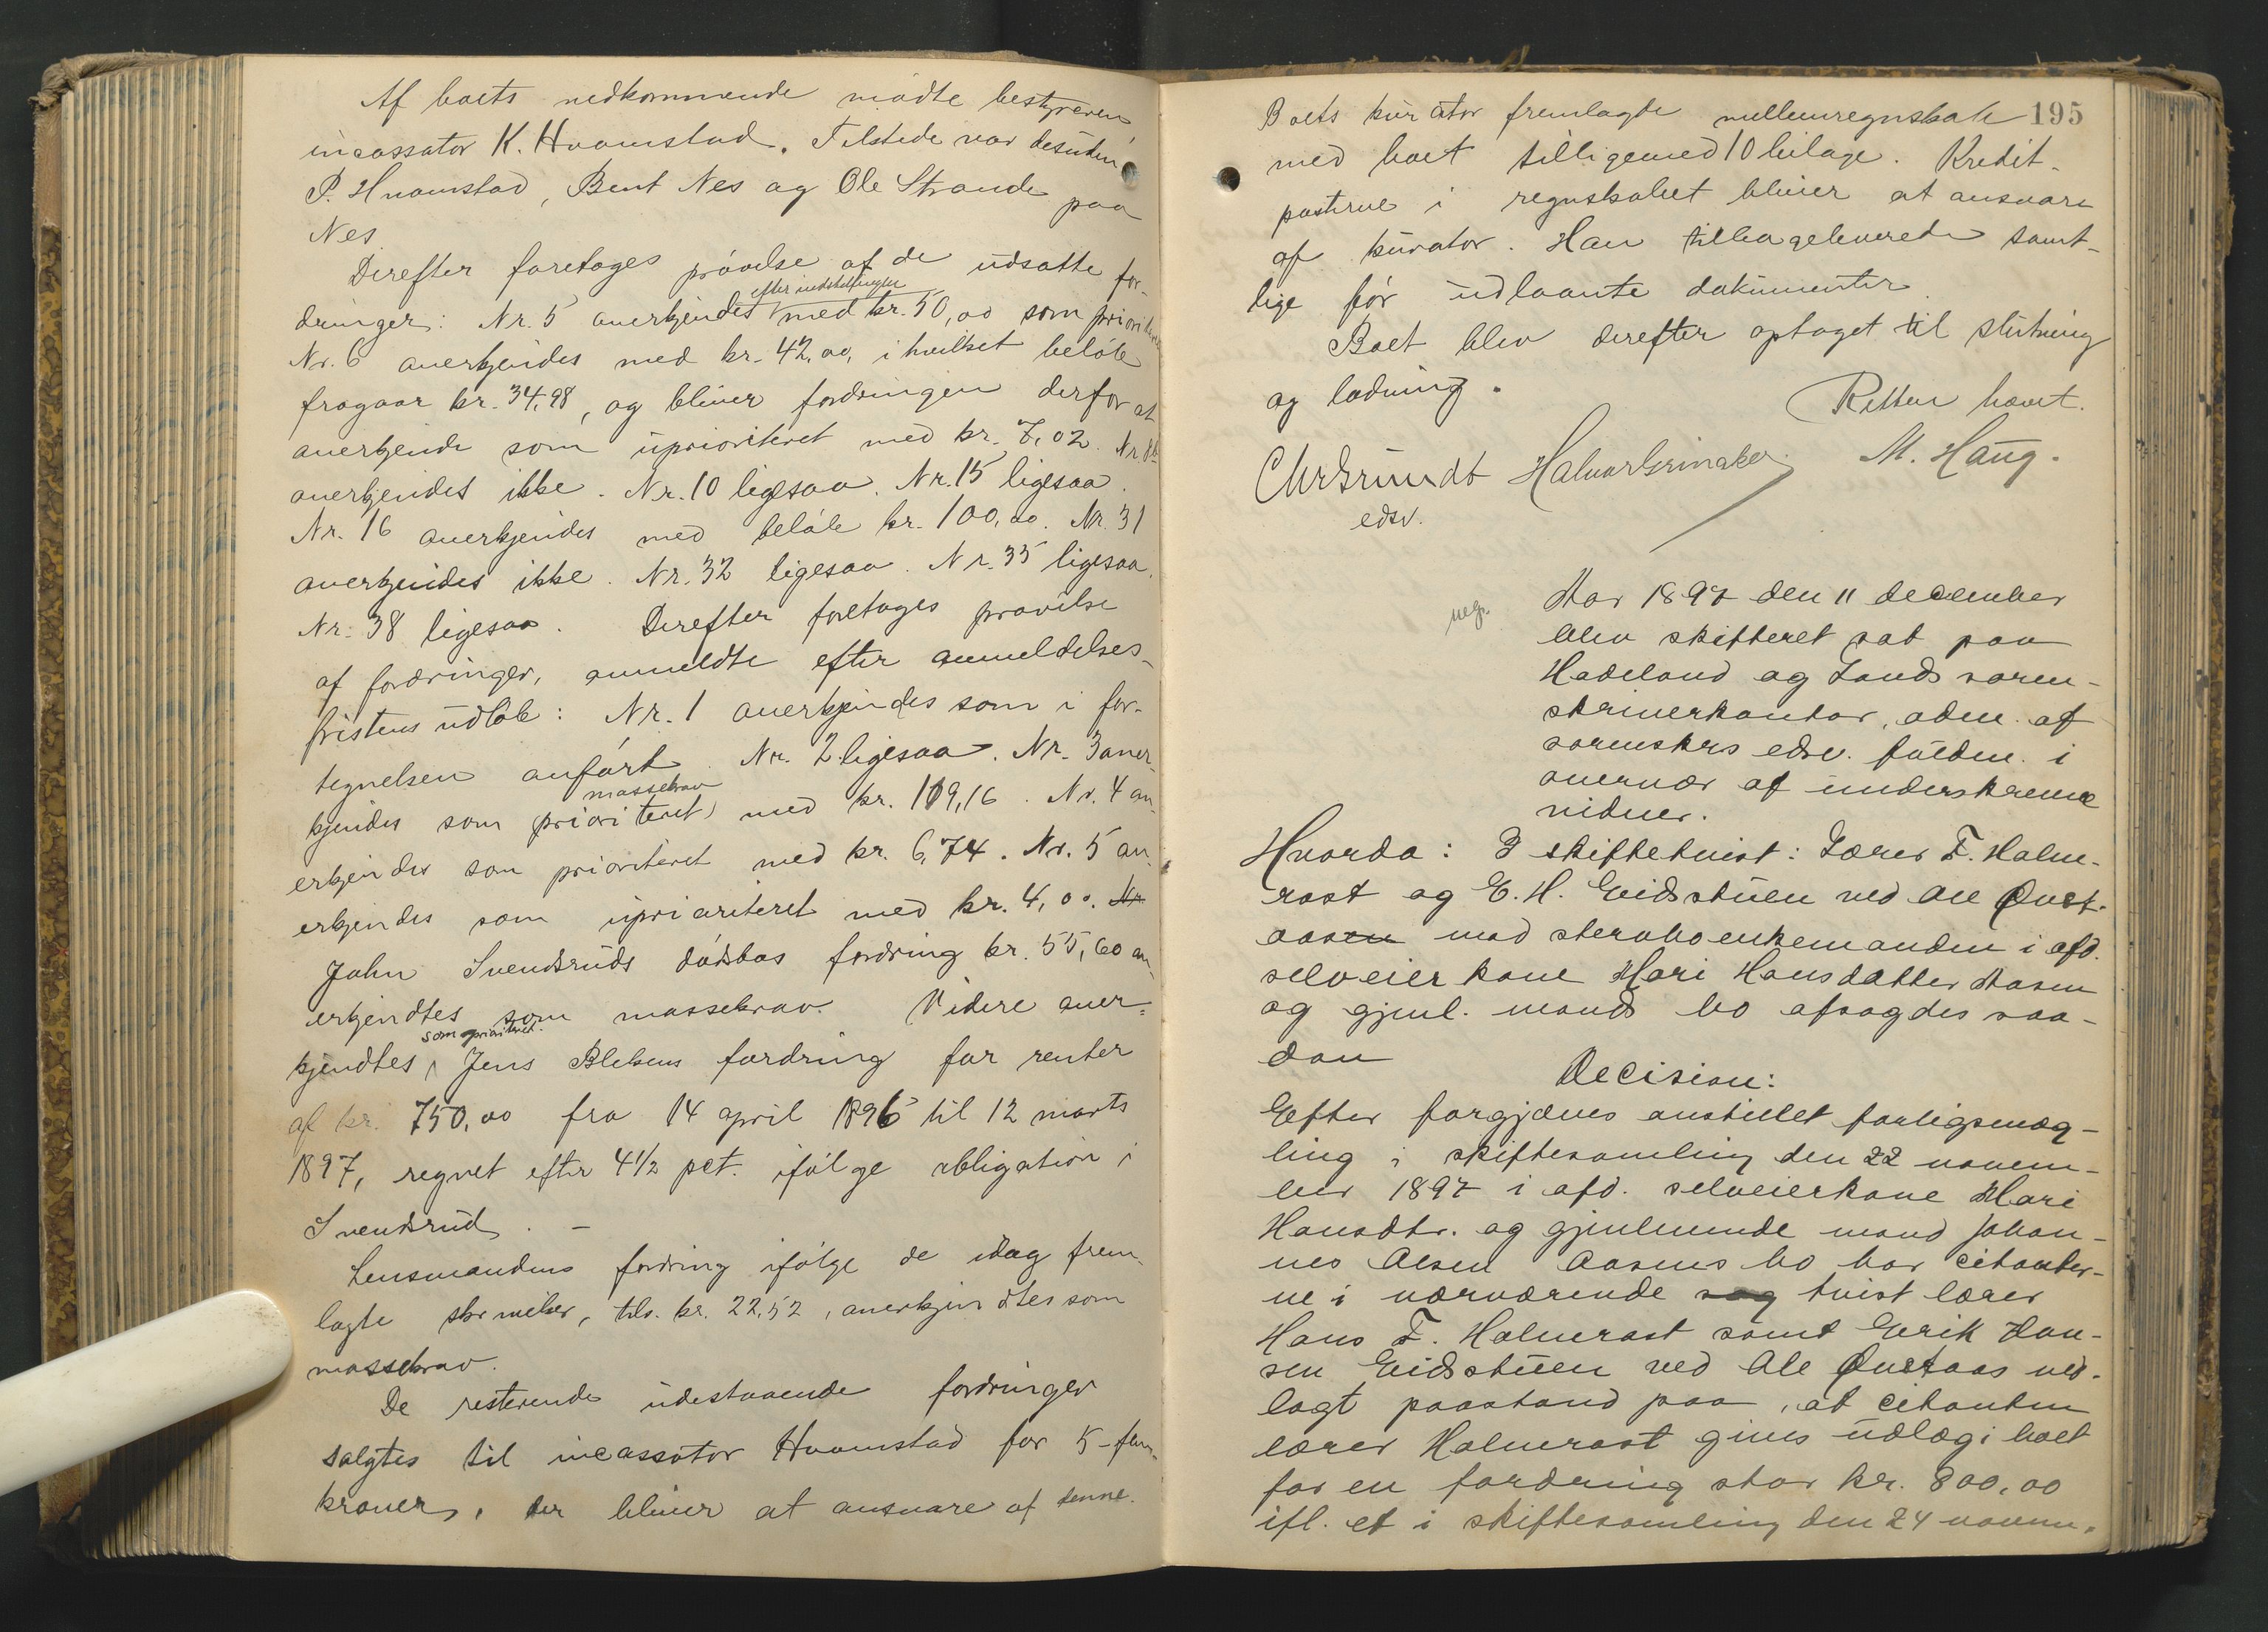 Af boets vedkommende mødte bestyreren,
incassator K. Hvamstad. Tilstede var desuden
P. Hvamstad, Bent Nes og Ole Strande paa
Nes.
Derefter foretoges prøvelse af de udsatte for-
efter indstillingen
dringer: Nr. 5 anerkjendes med kr. 50,00 som prioriteret
Nr. 6 anerkjendes med kr. 42,00, i hvilket beløb
fragaar kr. 34,98, og bliver fordringen derfor at
anerkjende som uprioriteret med kr. 7,02. Nr 8
anerkjendes ikke. Nr. 10 ligesaa. Nr. 15 ligesaa.
Nr. 16 anerkjendes med beløb kr. 100,00. Nr. 31
anerkjendes ikke. Nr. 32 ligesaa. Nr. 35 ligesaa.
Nr. 38 ligesaa. Derefter foretoges prøvelse
af fordringer, anmeldte efter anmeldelses-
fristens udløb: Nr. 1 anerkjendes som i for-
tegnelsen anført. Nr. 2 ligesaa. Nr. 3 aner-
massekrav
kjendes som (prioriteret) med kr. 109,16. Nr. 4 an-
erkjendes som prioriteret med kr. 6,74. Nr. 5 an-
erkjendes som uprioriteret med kr. 4,00. Nr
John Svendsruds dødsbos fordring kr. 55,60 an-
erkjendtes som massekrav. Videre aner-
som prioriteret
kjendtes Jens Blekens fordring for renter
af kr. 750,00 fra 14 april 1896 til 12 marts
1897, regnet efter 4½ pct. ifølge obligation i
Svendsrud. –
Lensmandens fordring ifølge de idag frem-
lagte skrivelser, tils. kr. 22,52, anerkjendtes som
massekrav.
De resterende udestaaende fordringer
solgtes til incassator Hvamstad for 5 - fem
kroner, der bliver at ansvare af denne.
195
Boets kurator fremlagde mellemregnskab
med boet tilligemed 10 bilage. Kredit-
posterne i regnskabet bliver at ansvare
af kurator. Han tilbageleverede samt-
lige før udlaante dokumenter.
Boet blev derefter optaget til slutning
og lodning.
Retten hævet.
Chr Grundt Halvor Grinaker M. Haug.
edsv.
neg.
Aar 1897 den 11 december
blev skifteret sat paa
Hadeland og Lands soren-
skriverkontor, adm. af
sorenskrs edsv. fuldm. i
overvær af underskrevne
vidner.
Hvorda: I skiftetvist: Lærer F. Halm-
rast og E. H. Eidstuen ved Ole Qvet-
aasen mod sterboenkemanden i afd.
selveierkone Mari Hansdatter Aasen
og gjenl. mands bo afsagdes saa-
dan
Decision:
Efter forgjæves anstillet forligsmæg-
ling i skiftesamling den 22 novem-
ber 1897 i afd. selveierkone Mari
Hansdtr. og gjenlevende mand Johan-
nes Olsen Aasens bo har citanter-
ne i nærværende sag tvist lærer
Hans F. Halmrast samt Erik Han-
sen Eidstuen ved Ole Qvetaas ned-
lagt paastand paa, at citanten
lærer Halmrast gives udlæg i boet
for en fordring stor kr. 800,00
ifl. et i skiftesamling den 24 novem.